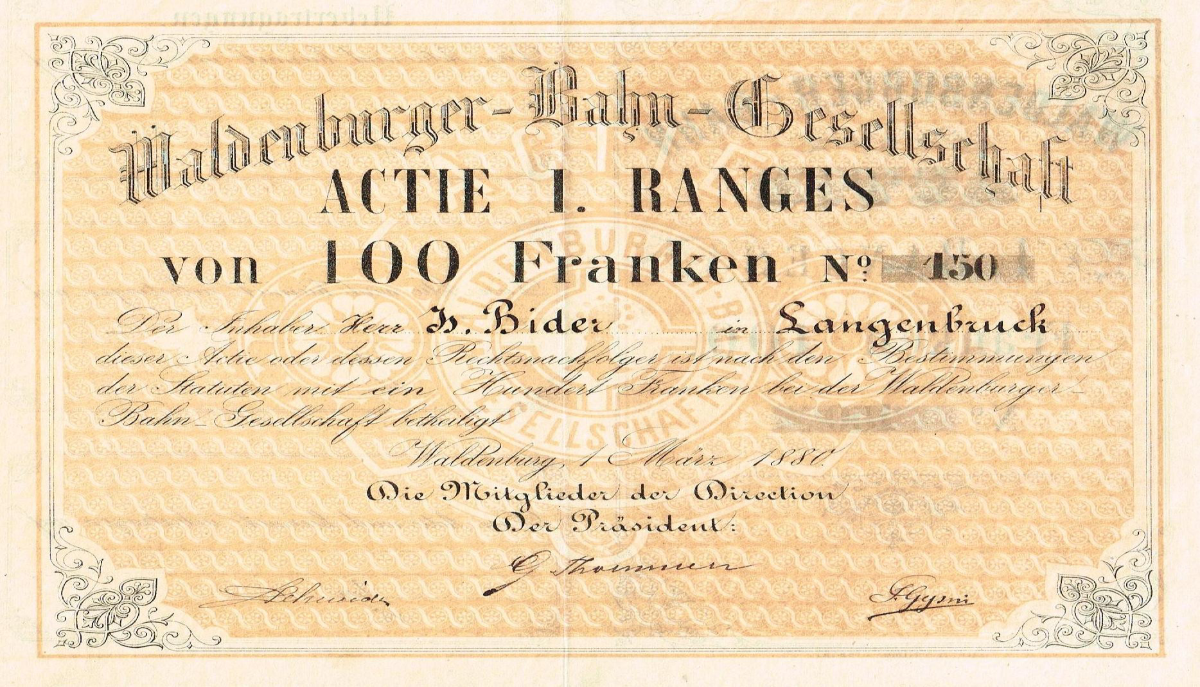 Uebertragungen.
Waldenburger-Bahn-Gesellschaft
ACTIE I. RANGES
von 100 Franken No: 150
Der Inhaber Herr Is. Bider in Langenbruck
dieser Actie oder dessen Rechtsnachfolger ist nach den Bestimmungen
der Statuten mit ein Hundert Franken bei der Waldenburger-
Bahn-Gesellschaft betheiligt
Waldenburg, 1 März 1880.
Die Mitglieder der Direction
Der Präsident:
G Thommen
Schneider
Gysin